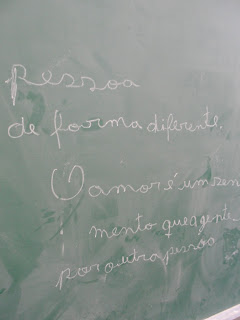 pessoa
de forma diferente.
O amor é um sen
mento que a gente
por outra pessoa